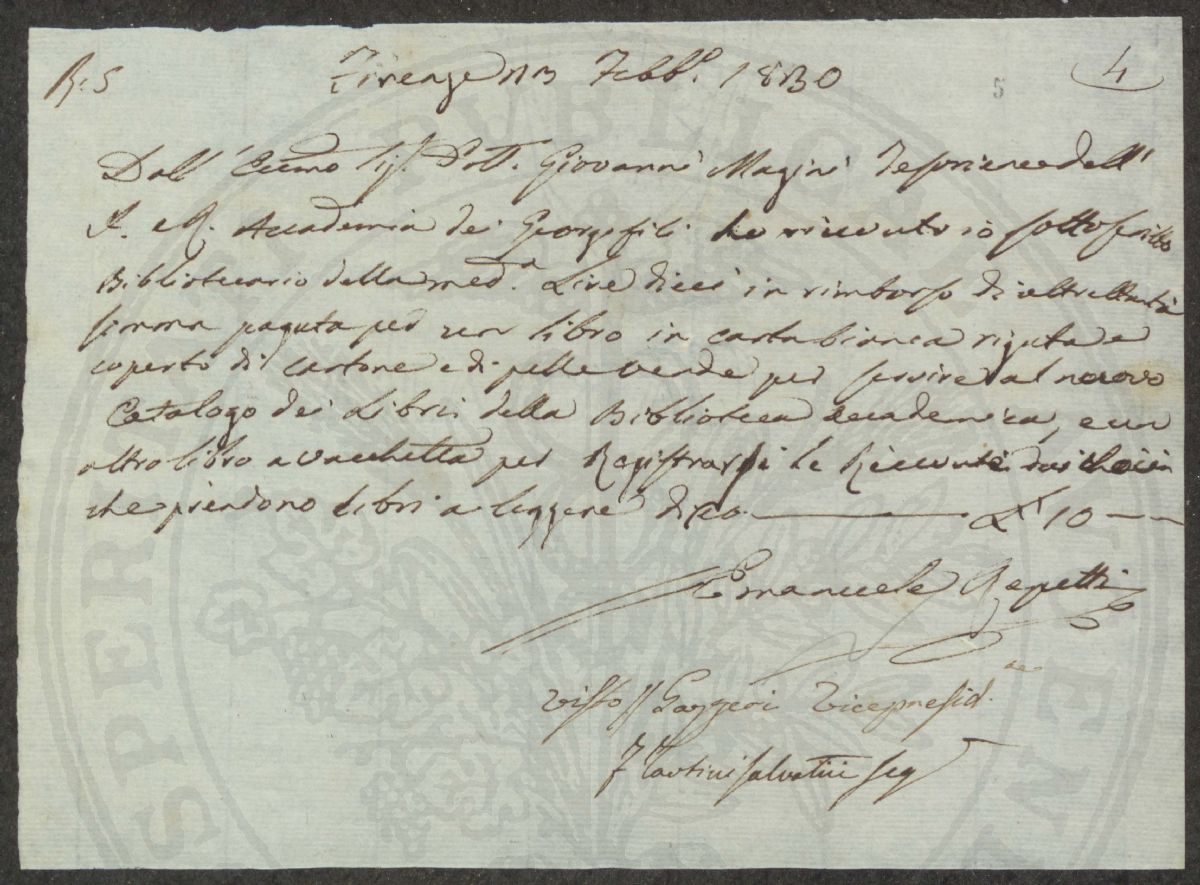 R. 5 Firenze 13 Febb.º 1830 5 4
Dall' Eccmo Sig.r Dott. Giovanni Magini Tesoriere dell'
I. e R. Accademia dei Georgofili ho ricevuto io sottoscritto
Bibliotecario della med.a Lire dieci in rimborso di altrettanta
somma pagata per un libro in carta bianca rigata e
coperto di cartone e di pelle verde per servire al nuovo
Catalogo dei Libri della Biblioteca accademica, e un
altro libro a vacchetta per Registrarsi le Ricevute dai Socii
che prendono libri a leggere dico L. 10
Emanuele Repetti
visto Gazzeri Vicepresid.te
F Tartini Salvatici Seg
SPERITATI PUBLICAE